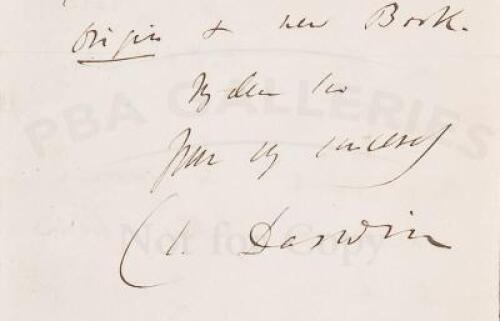 Origin & new Book.
My dear Sir
Yours very sincerely
Ch. Darwin
PBA GALLERIES
Not for Copy